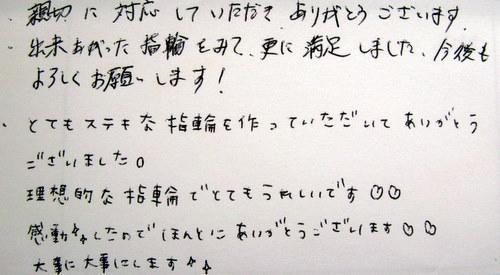 親切に対応していただき ありがとうございます.
・出来あがった指輪をみて、更に満足しました、今後も
よろしくお願いします！
・とてもステキな指輪を作っていただいてありがとう
ございました。
理想的な指輪でとてもうれしいです♡♡
感動✨したのでほんとにありがとうございます♡♡
大事に大事にします✨